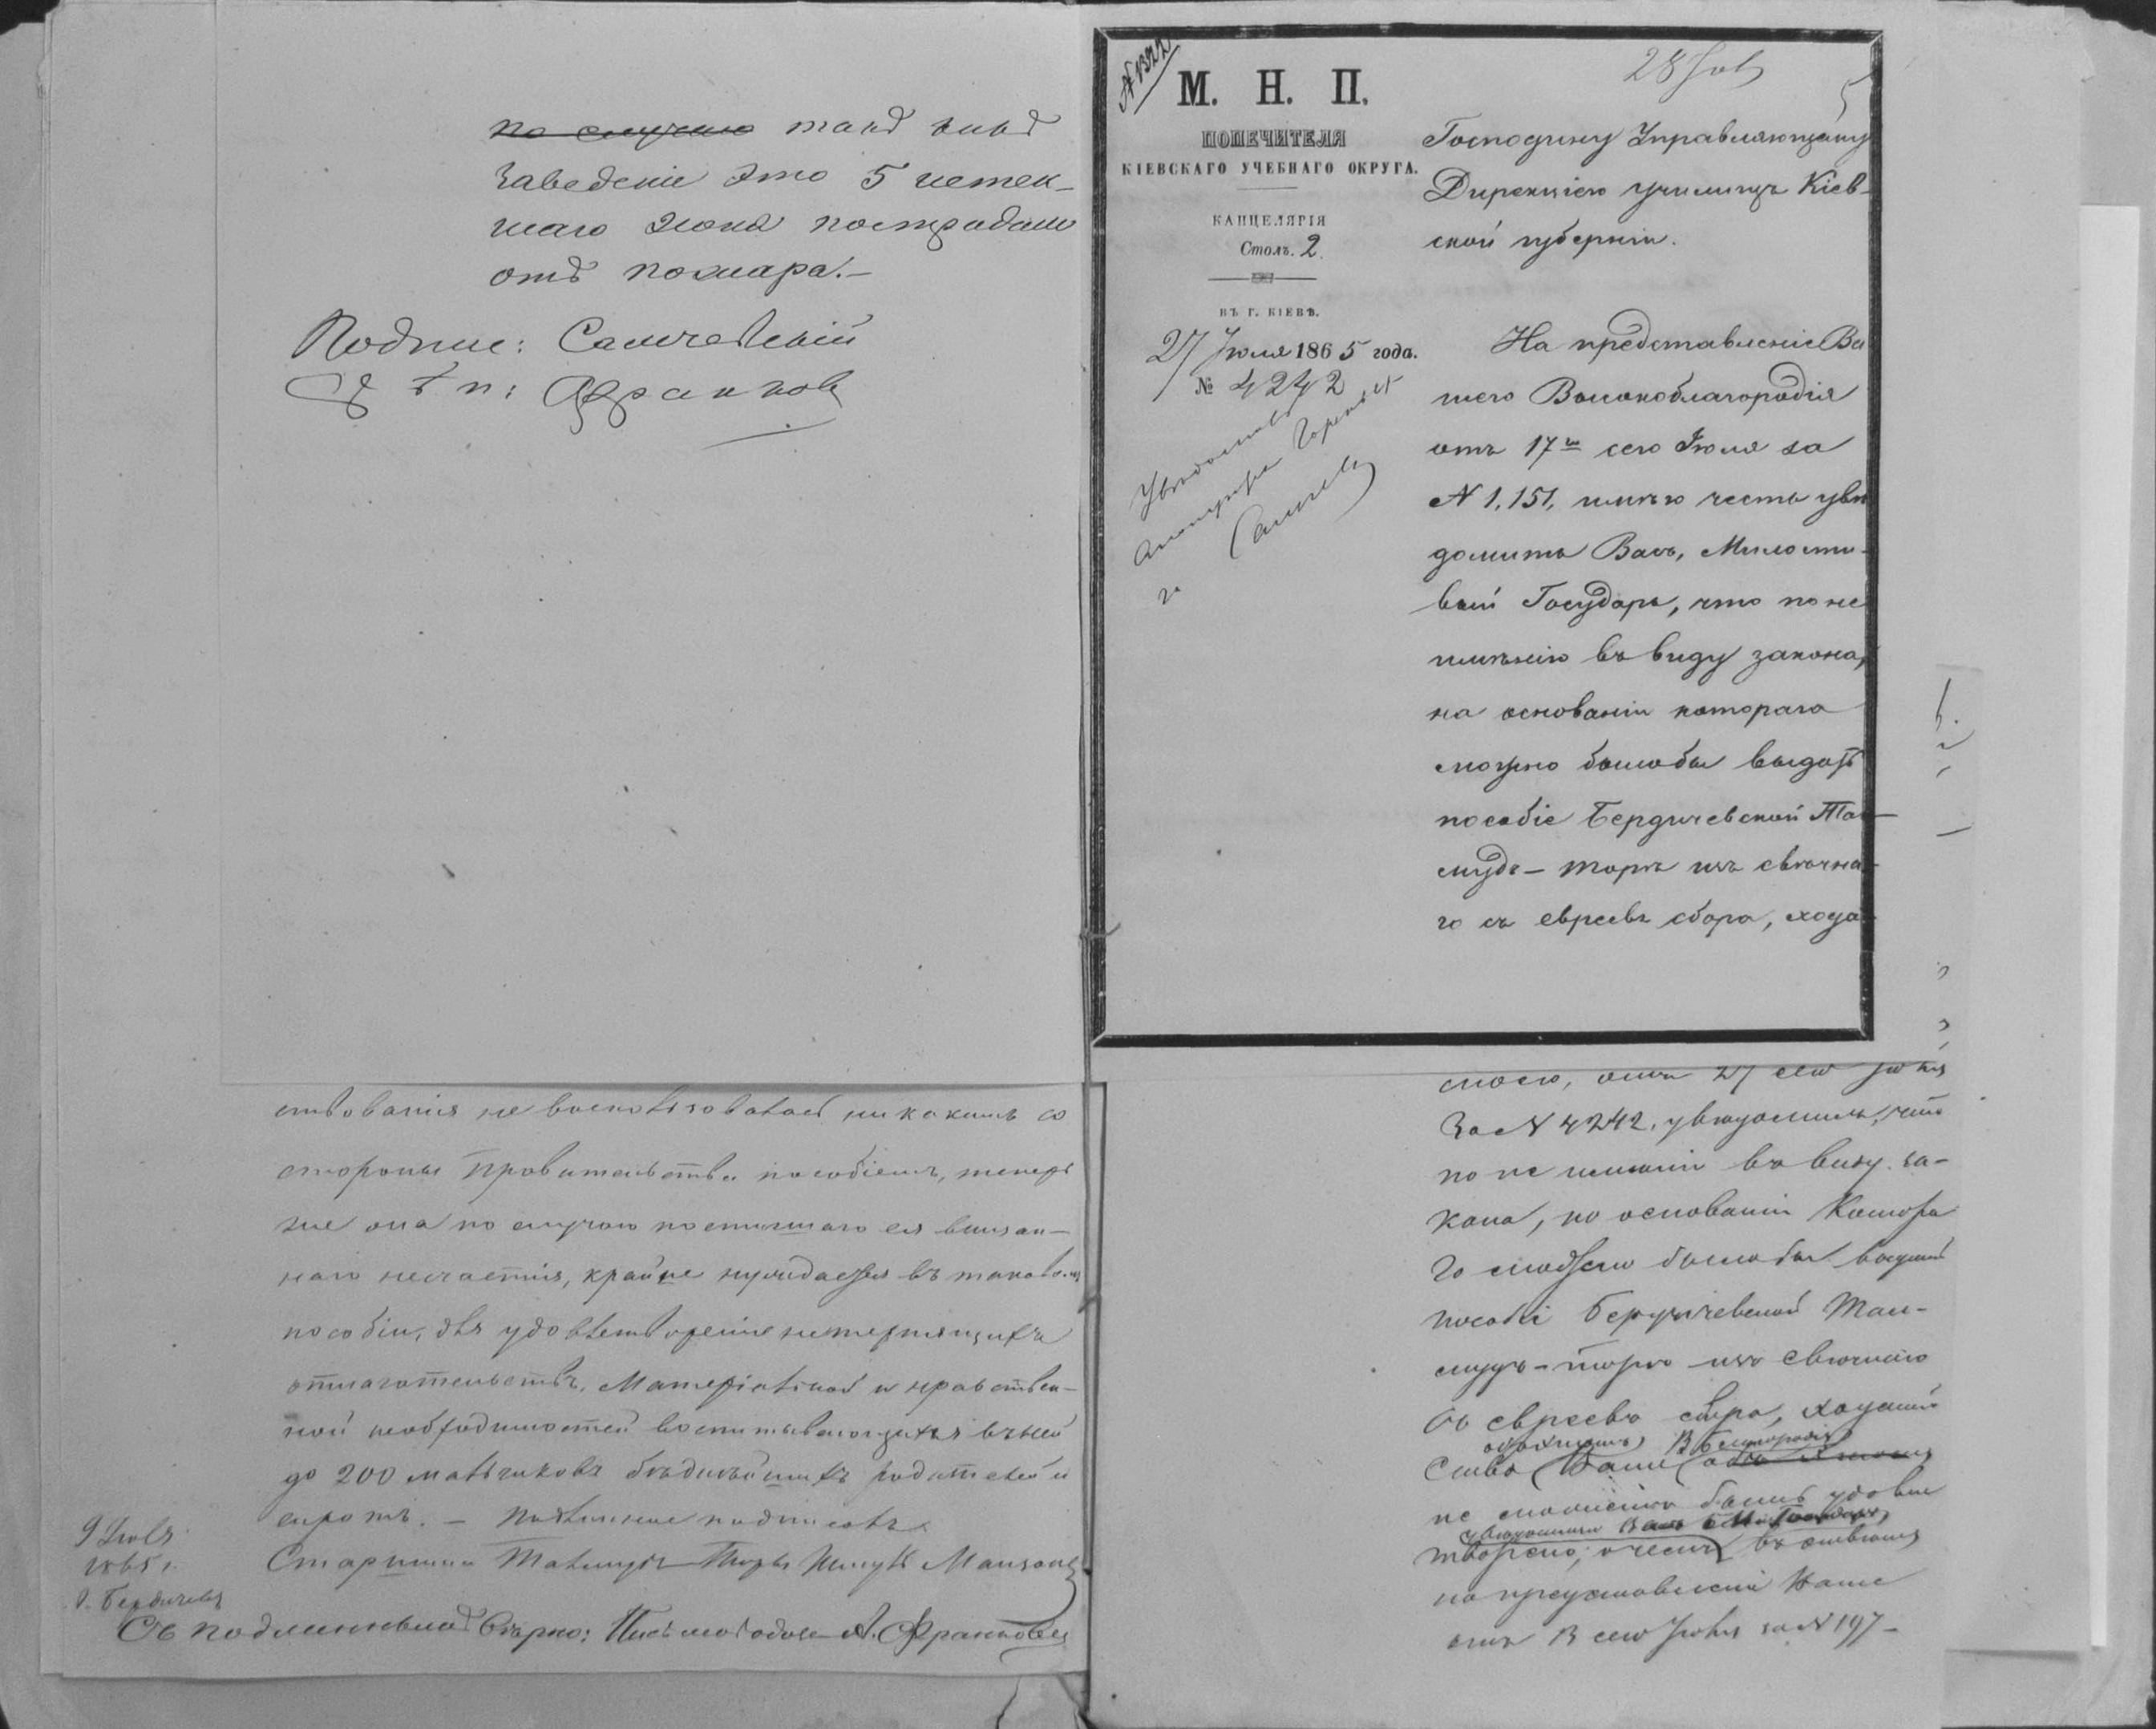 по случаю такъ какъ
заведеніе это 5 истек-
шаго Іюня пострадало
отъ пожара.-
Подпис: Самчевскій
Франковъ
ствованія не воспользовалась никакимъ со
стороны Правительства пособіемъ, теперь
же она по случаю постигшаго ея внизап-
наго несчастія, крайне нуждается въ таковомъ
пособіи, для удовлетвореніе нетерпящихъ
отлагательствъ, Матеріальной и нравствен-
ной необходимостей воспитывающихся въ ней
до 200 мальчиковъ бѣднѣйшихъ родителей и
сиротъ. - Подлинное подписалъ
Старшина Талмудъ Торы
9 Іюля
1865 г.
г. Бердичевъ
Съ подлиннымъ вѣрно: Письмоводов. А. Франковъ
№ 1322
М. Н. П.
ПОПЕЧИТЕЛЯ
КІЕВСКАГО УЧЕБНАГО ОКРУГА.
КАНЦЕЛЯРІЯ
Столъ. 2.
ВЪ Г. КІЕВѢ.
27 Іюля 1865 года.
№ 4242
28 Іюля
5
Господину Управляющему
Дирекціею училищъ Кіев-
ской губерніи.
На представленіе Ва
шего Высокоблагородія
отъ 17го сего Іюля за
№ 1,151, имѣю честь увѣ
домить Васъ, Милости-
вый Государь, что по не
имѣнію въ виду закона,
на основаніи котораго
можно былобы выдать
пособіе Бердичевской Тал-
мудъ-торѣ изъ свѣчна-
го съ евреевъ сбора, хода-
моего, отъ 27 сего Іюля
за № 4242, увѣдомилъ, что
по не имѣніи въ виду за-
кона, на основаніи котора
го можно былобы выдать
пособіе Бердичевской Тал-
мудъ-торѣ изъ свѣчнаго
съ евреевъ сбора, ходатай
ство Ваше
не можетъ быть удовле
творено, о чемъ въ отвѣтъ
на представленіе Ваше
отъ 13 сего Іюля за № 197-